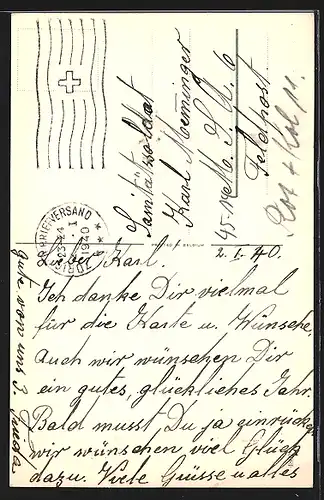 Sanitätssoldat
Karl Memminger
M. S. A. 6
Feldpost.
Rot + Kol 11.
ZÜRICH BRIEFVERSAND
23-24
I
1940
2. I. 40.
Lieber Karl.
Ich danke Dir vielmal
für die Karte u. Wünsche,
auch wir wünschen Dir
ein gutes, glückliches Jahr.
Bald musst Du ja einrücken
wir wünschen viel Glück
dazu. Viele Grüsse u alles
gute von uns 3